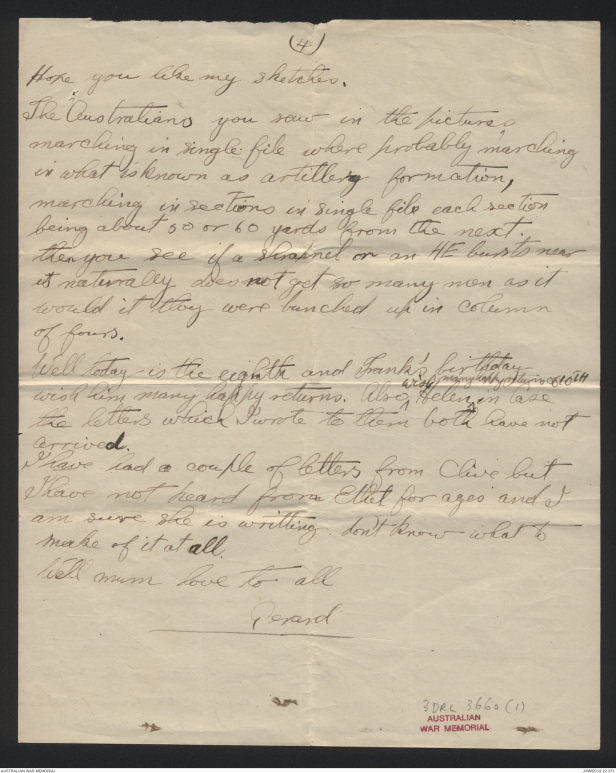 (4)
Hope you like my sketches.
The "Australians you saw in the pictures
marching in single file where probably "marching
in what is known as artillery formation,
marching in sections in single file each section
being about 50 or 60 yards from the next.
then you see if a shrapnel or an HE bursts near
it naturally does not get so many men as it
would if they were bunched up in column
of fours.
Well today is the eighth and Frank's birthday
wish many happy returns 10TH
wish him many happy returns. Also, Helen, in case
the letters which I wrote to them both have not
arrived.
I have had a couple of letters from Clive but
I have not heard from Ethel for ages and I
am sure she is writting. don't know what to
make of it at all.
Well mum love to all
Gerard
3DRL 3660 (1)
AUSTRALIAN
WAR MEMORIAL
AUSTRALIAN WAR MEMORIAL